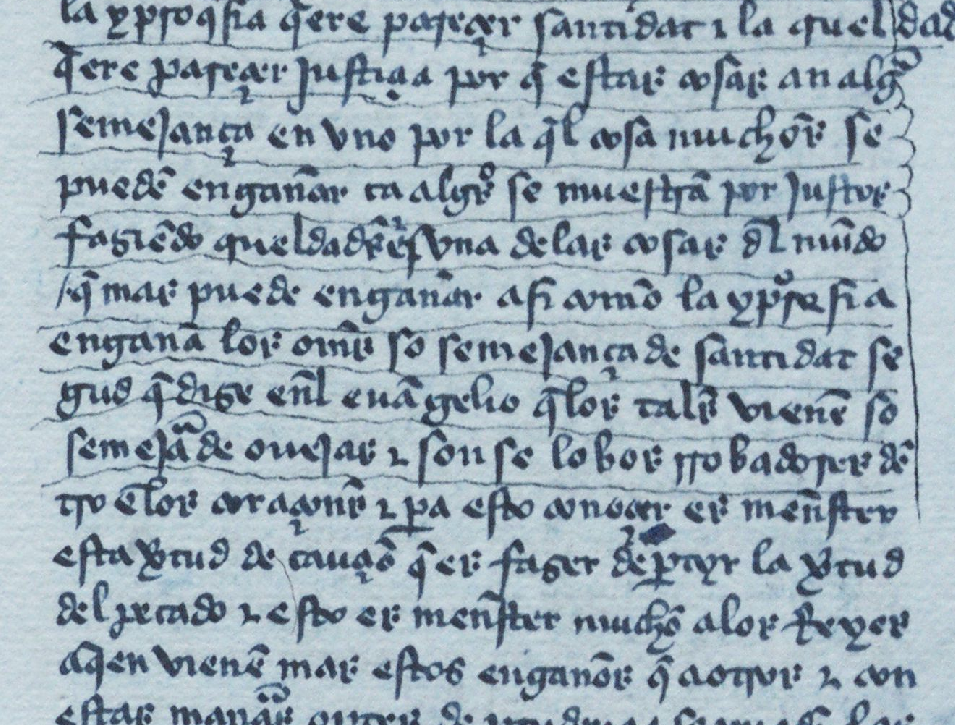 la ypocrisia q̃ere pareçer santidat ⁊ la crueldad
q̃ere pareçer justiçia por q̃ estas cosas an algũa
semejança en uno por la q̃l cosa muchos se
puedẽ engañar ca algũos se muestrã por justos
fasiẽdo crueldades ⁊ es una de las cosas dl mũdo
q̃ mas puede engañar asi como la ypocresia
engaña los omẽs so semejança de santidat se
gud q̃ dise enl euãgelio q̃ los tales vienẽ so
semejãça de ovejas ⁊ son se lobos rrobadores dẽ
tro e los coraçones ⁊ pa esto conoçer es menester
esta vtud de cauçiõ q̃ es faser departyr la vtud
del pecado ⁊ esto es menester mucho a los Reyes
aqen vienẽ mas estos engaños q̃ a otros ⁊ con
estas maneras